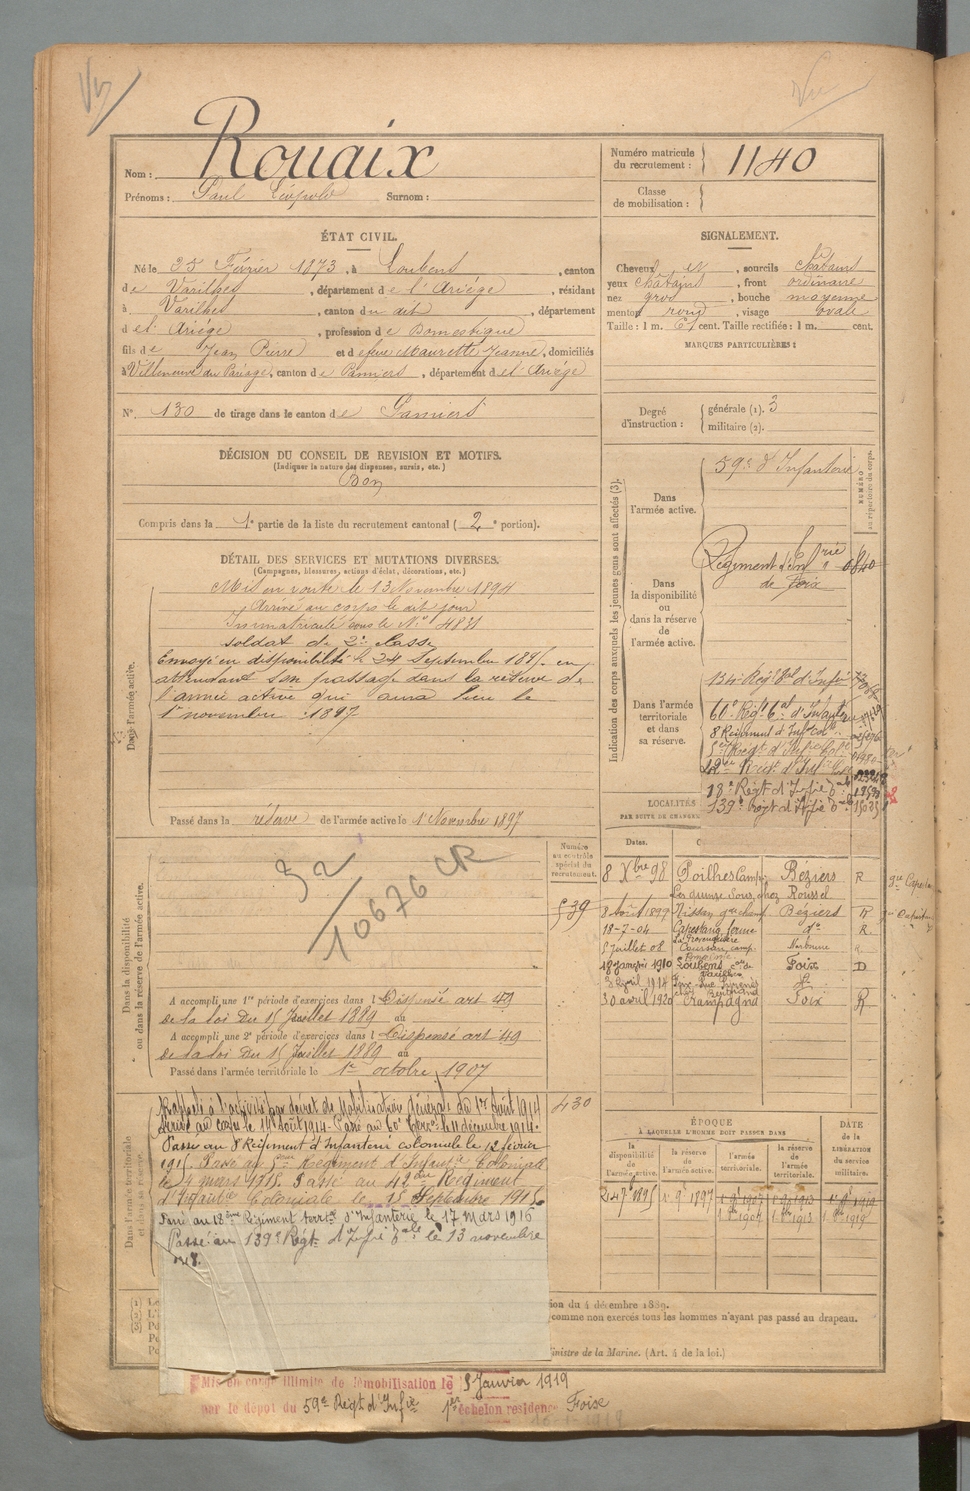 Vu
Vu
Nom : Rouaix
Prénoms : Paul Léopold Surnom :
Numéro matricule du recrutement : 1140
Classe de mobilisation :
ÉTAT CIVIL.
Né le 25 Février 1873, à Loubens, canton
de Varilhes, département de l'Ariège, résidant
à Varilhes, canton du dit, département
d el' Ariège, profession de Domestique
fils de Jean Pierre et de feue Maurette Jeanne, domiciliés
à Villeneuve du Paréage, canton de Pamiers, département d el' Ariège
N° 130 de tirage dans le canton de Pamiers
SIGNALEMENT.
Cheveux et, sourcils châtains
yeux châtains, front ordinaire
nez gros, bouche moyenne
menton rond, visage ovale
Taille : 1 m. 61 cent. Taille rectifiée : 1 m. cent.
MARQUES PARTICULIÈRES :
Degré d'instruction : générale (1). 3
militaire (2).
DÉCISION DU CONSEIL DE REVISION ET MOTIFS.
(Indiquer la nature des dispenses, sursis, etc.)
Bon
Compris dans la 1e partie de la liste du recrutement cantonal (2e portion).
DÉTAIL DES SERVICES ET MUTATIONS DIVERSES.
(Campagnes, blessures, actions d'éclat, décorations, etc.)
Dans l'armée active.
Mis en route le 13 Novembre 1894
Arrivé au corps le dit jour
Immatriculé sous le N° 4831
soldat de 2e classe
Envoyé en disponibilité le 24 Septembre 1895 en
attendant son passage dans la réserve de
l'armée active qui aura lieu le
1er novembre 1897
Passé dans la réserve de l'armée active le 1er Novembre 1897
Indication des corps auxquels les jeunes gens sont affectés (3).
NUMÉRO au répertoire du corps.
Dans l'armée active.
59e d'Infanterie
Dans la disponibilité ou dans la réserve de l'armée active.
Régiment d'Infrie
de Foix
0840
Dans l'armée territoriale et dans sa réserve.
134e Régt tal d'Infie
60e Régt tal d'Infanterie
8 Régiment d'Infie colle
5e Régt d'Infie Colle
42e Régt d'Infie Col
18e Régt d'Infie tale
139e Régt d'Infie tale 15035
LOCALITÉS
PAR SUITE DE CHANGE
Dates.
8 Xbre 98 Poilhes Camp. Béziers R
8 Août 1899 Nissan Béziers R
18-7-04 Capestang ferme do R
5 Juillet 08 Coursan, camp. Narbonne R
18 janvier 1910 Loubens con de Varilhes Foix D
3 avril 1914
30 avril 1920 Crampagna Foix R
Dans la disponibilité ou dans la réserve de l'armée active.
32
10676 CR
Numéro au contrôle spécial du recrutement.
539
A accompli une 1re période d'exercices dans l Dispensé art 49
de la loi du 15 Juillet 1889 au
A accompli une 2e période d'exercices dans l Dispensé art 49
de la loi du 15 Juillet 1889 au
Passé dans l'armée territoriale le 1er octobre 1907
Dans l'armée territoriale et dans sa réserve.
430
Rappelé à l'activité par décret de Mobilisation Générale du 1er Août 1914
Arrivé au corps le 14 Août 1914 - Passé au 60e Terral le 11 décembre 1914.
Passé au 8e Régiment d'Infanterie coloniale le 12 février
1915. Passé au 5ème Régiment d'Infanie Coloniale
le 9 mars 1915. Passé au 42ème Régiment
d'Infanie Coloniale le 15 Septembre 1915.
Passé au 18ème Régiment territal d'Infanterie le 17 mars 1916
Passé au 139e Régt d'Infie tale le 13 novembre
1918.
ÉPOQUE
A LAQUELLE L'HOMME DOIT PASSER DANS
la disponibilité de l'armée active.
la réserve de l'armée active.
l'armée territoriale.
la réserve de l'armée territoriale.
DATE de la LIBÉRATION du service militaire.
24 7bre 1895 1er 9bre 1897
1er 8bre 1907 1er 8bre 1913 1er 8bre 1919
ion du 4 décembre 1889.
comme non exercés tous les hommes n'ayant pas passé au drapeau.
Ministre de la Marine. (Art. 4 de la loi.)
Mis en congé illimité de démobilisation le 5 Janvier 1919
par le dépot du 59e Régt d'Infie 1er échelon résidence Foix